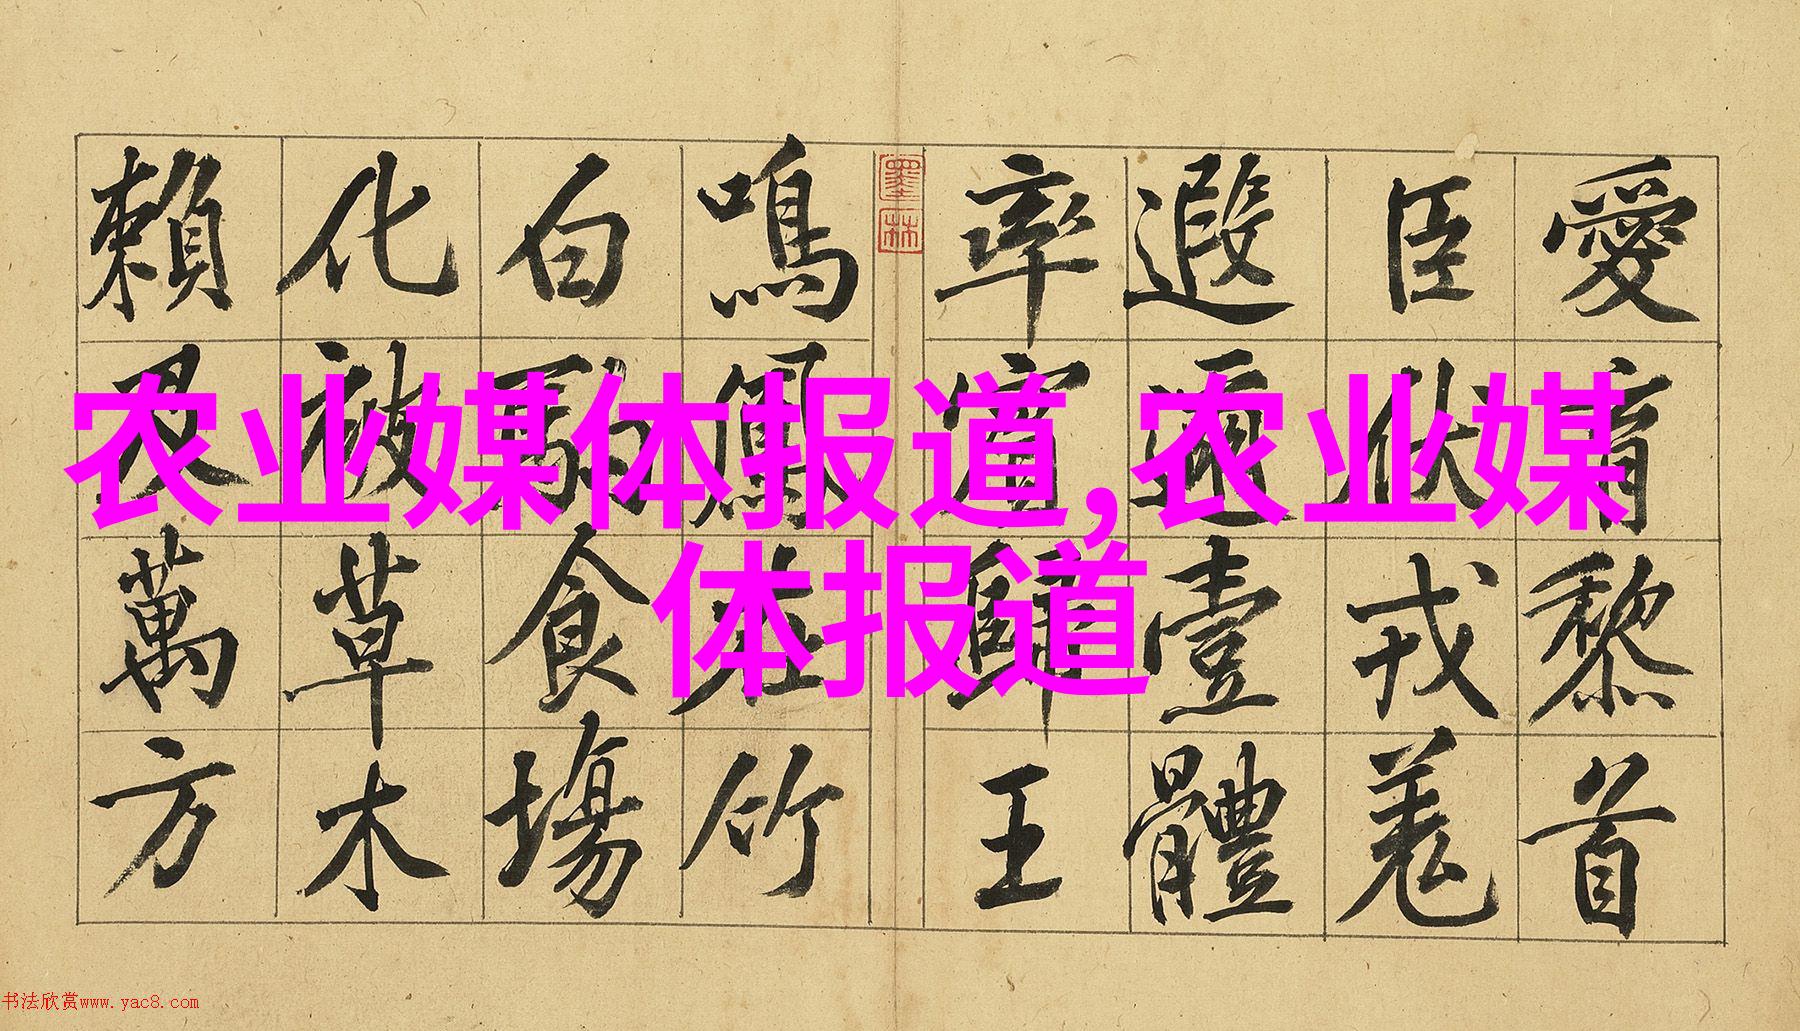 愛育黎首
臣伏戎羌
遐邇壹體
率賓歸王
墨林
鳴鳳在竹
白駒食場
化被草木
賴及萬方
农业媒体报道,农业媒
体报道
书法欣赏www.yac8.com